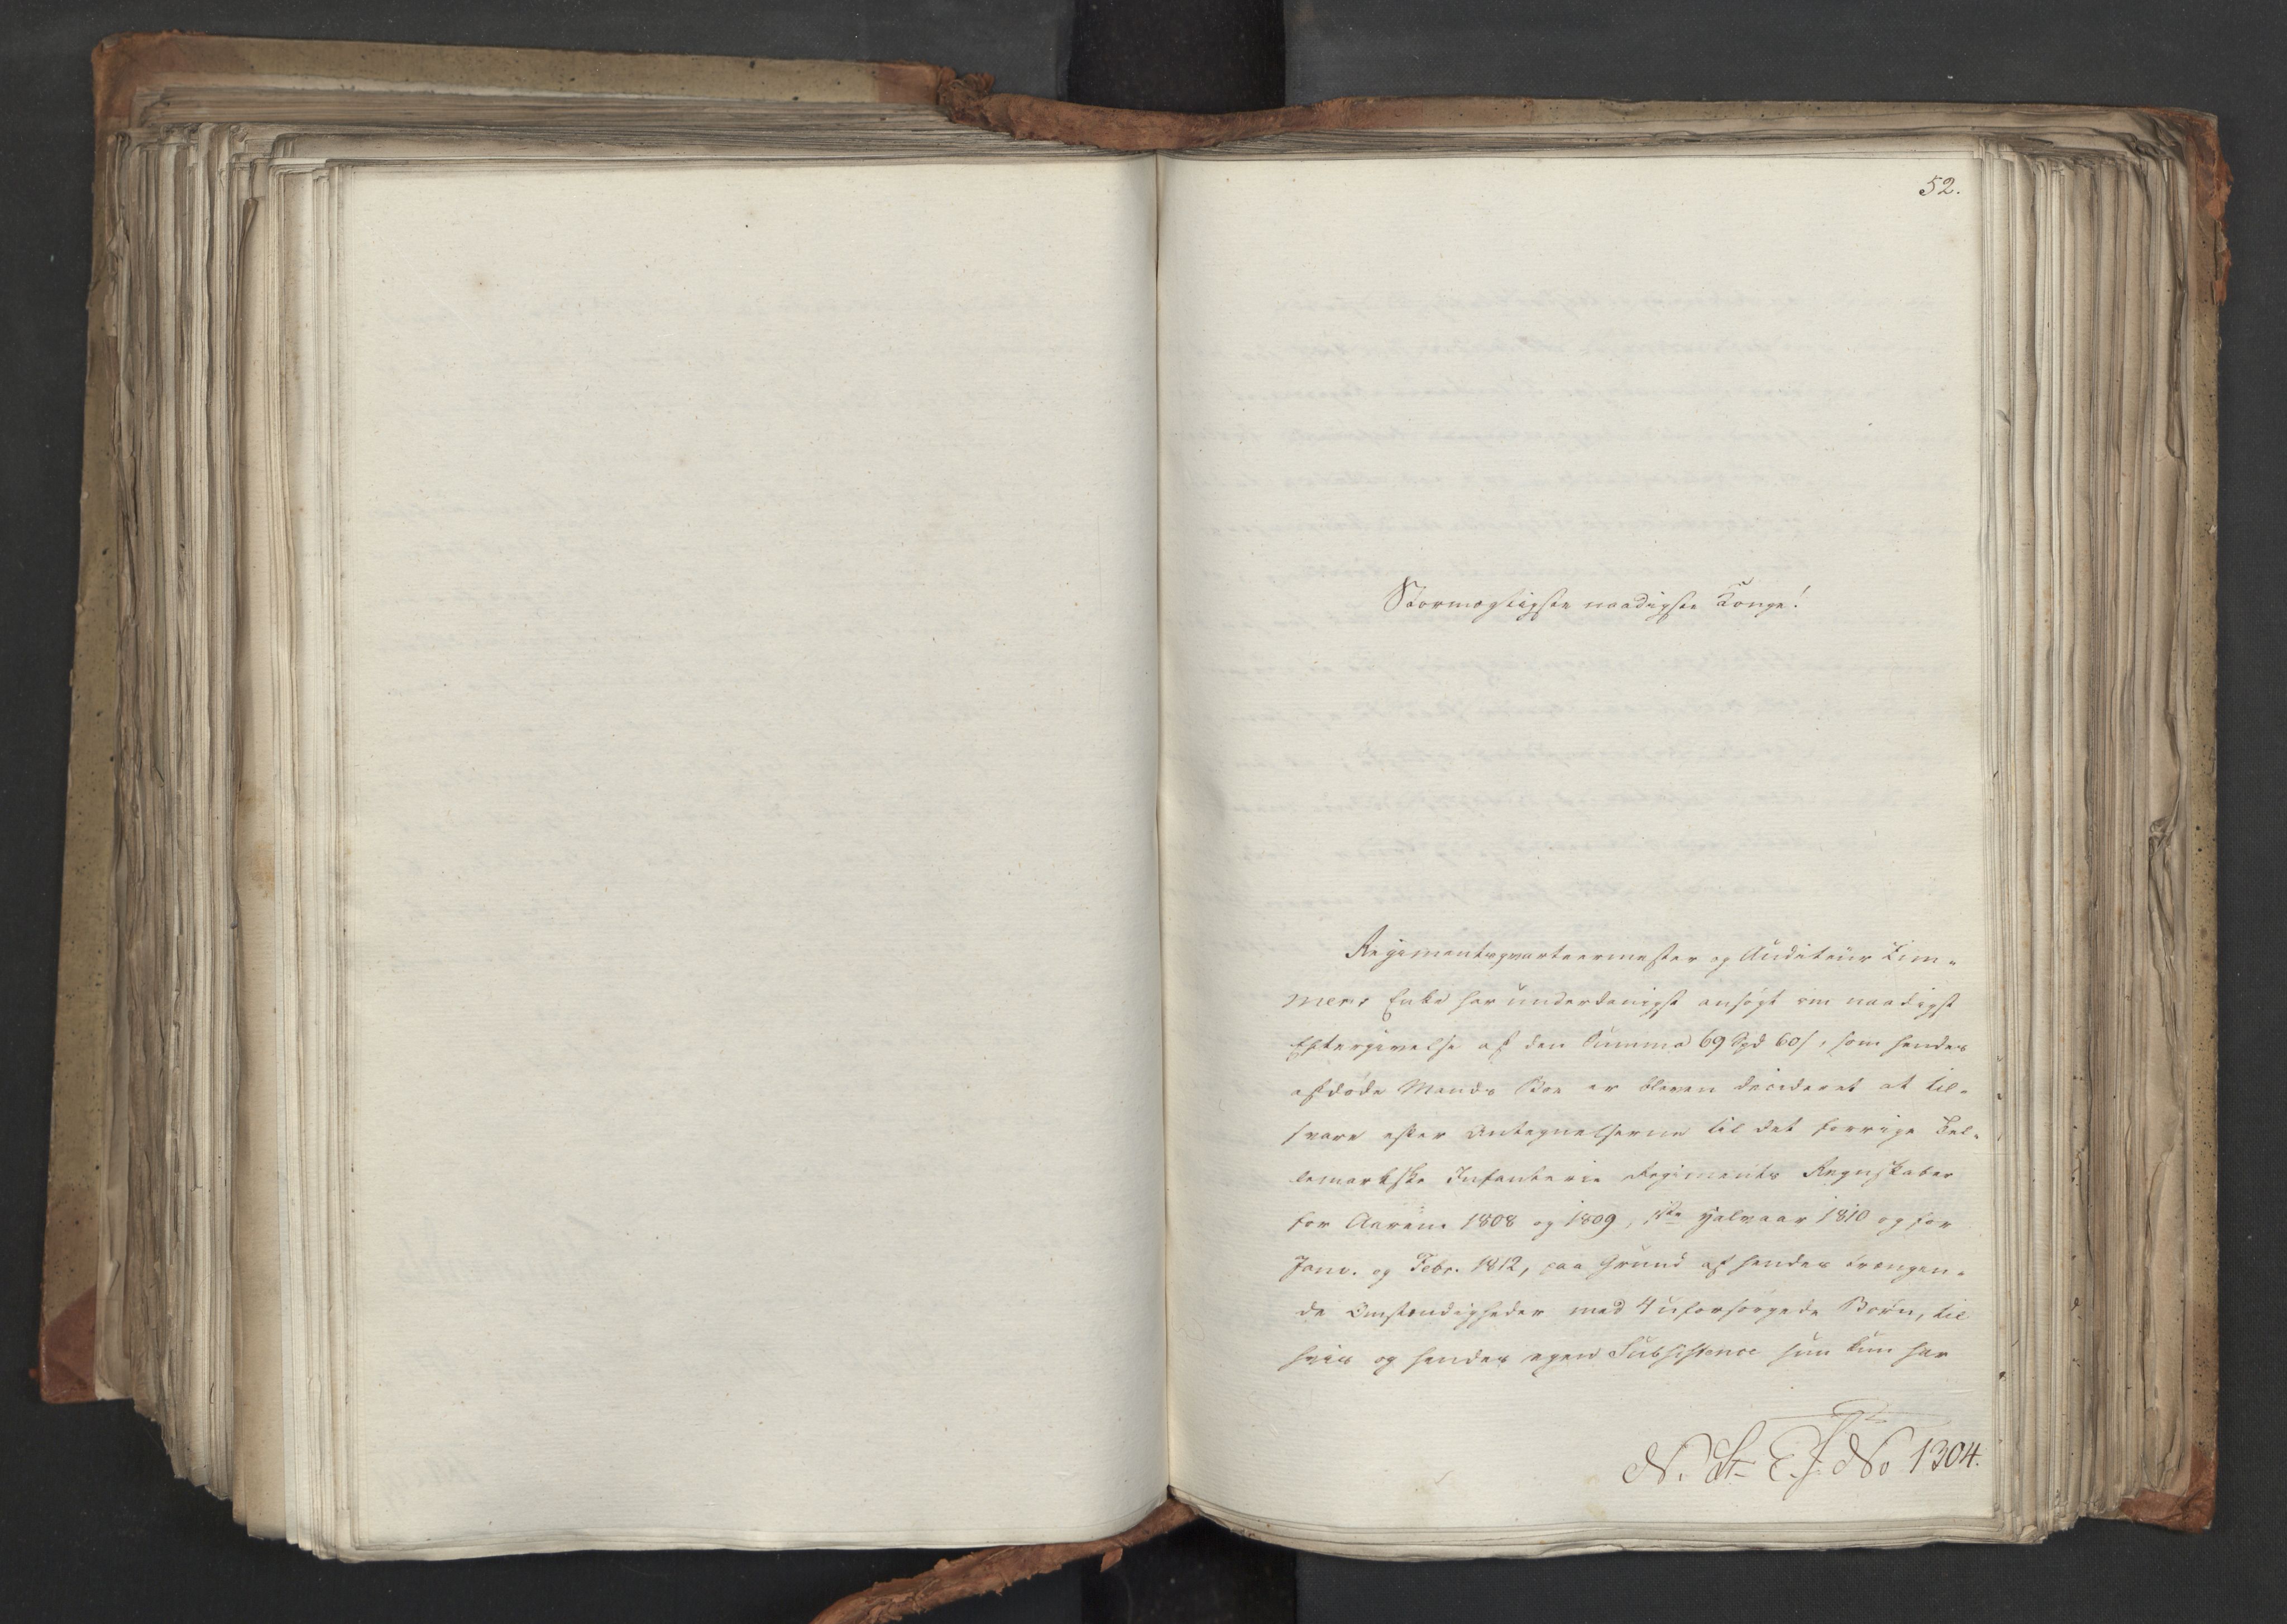 52.
Stormægtigste naadigste Konge!
Regimentsqvarteermester og Auditeur Tim-
mens Enke har underdanigst ansøgt om naadigst
Eftergivelse af den Summa 69 Spd 60 s, som hendes
afdøde Mands Boe er bleven decideret at til-
svare efter Antegnelserne til det forrige Tel-
lemarkske Infanterie Regiments Regnskaber
for Aarene 1808 og 1809, 1ste Halvaar 1810 og for
Janv. og Febr. 1812, paa Grund af hendes trængen-
de Omstændigheder med 4 uforsørgede Børn, til
hvis og hendes egen Subsistence hun kun har
N. St. E. J. No 1304.